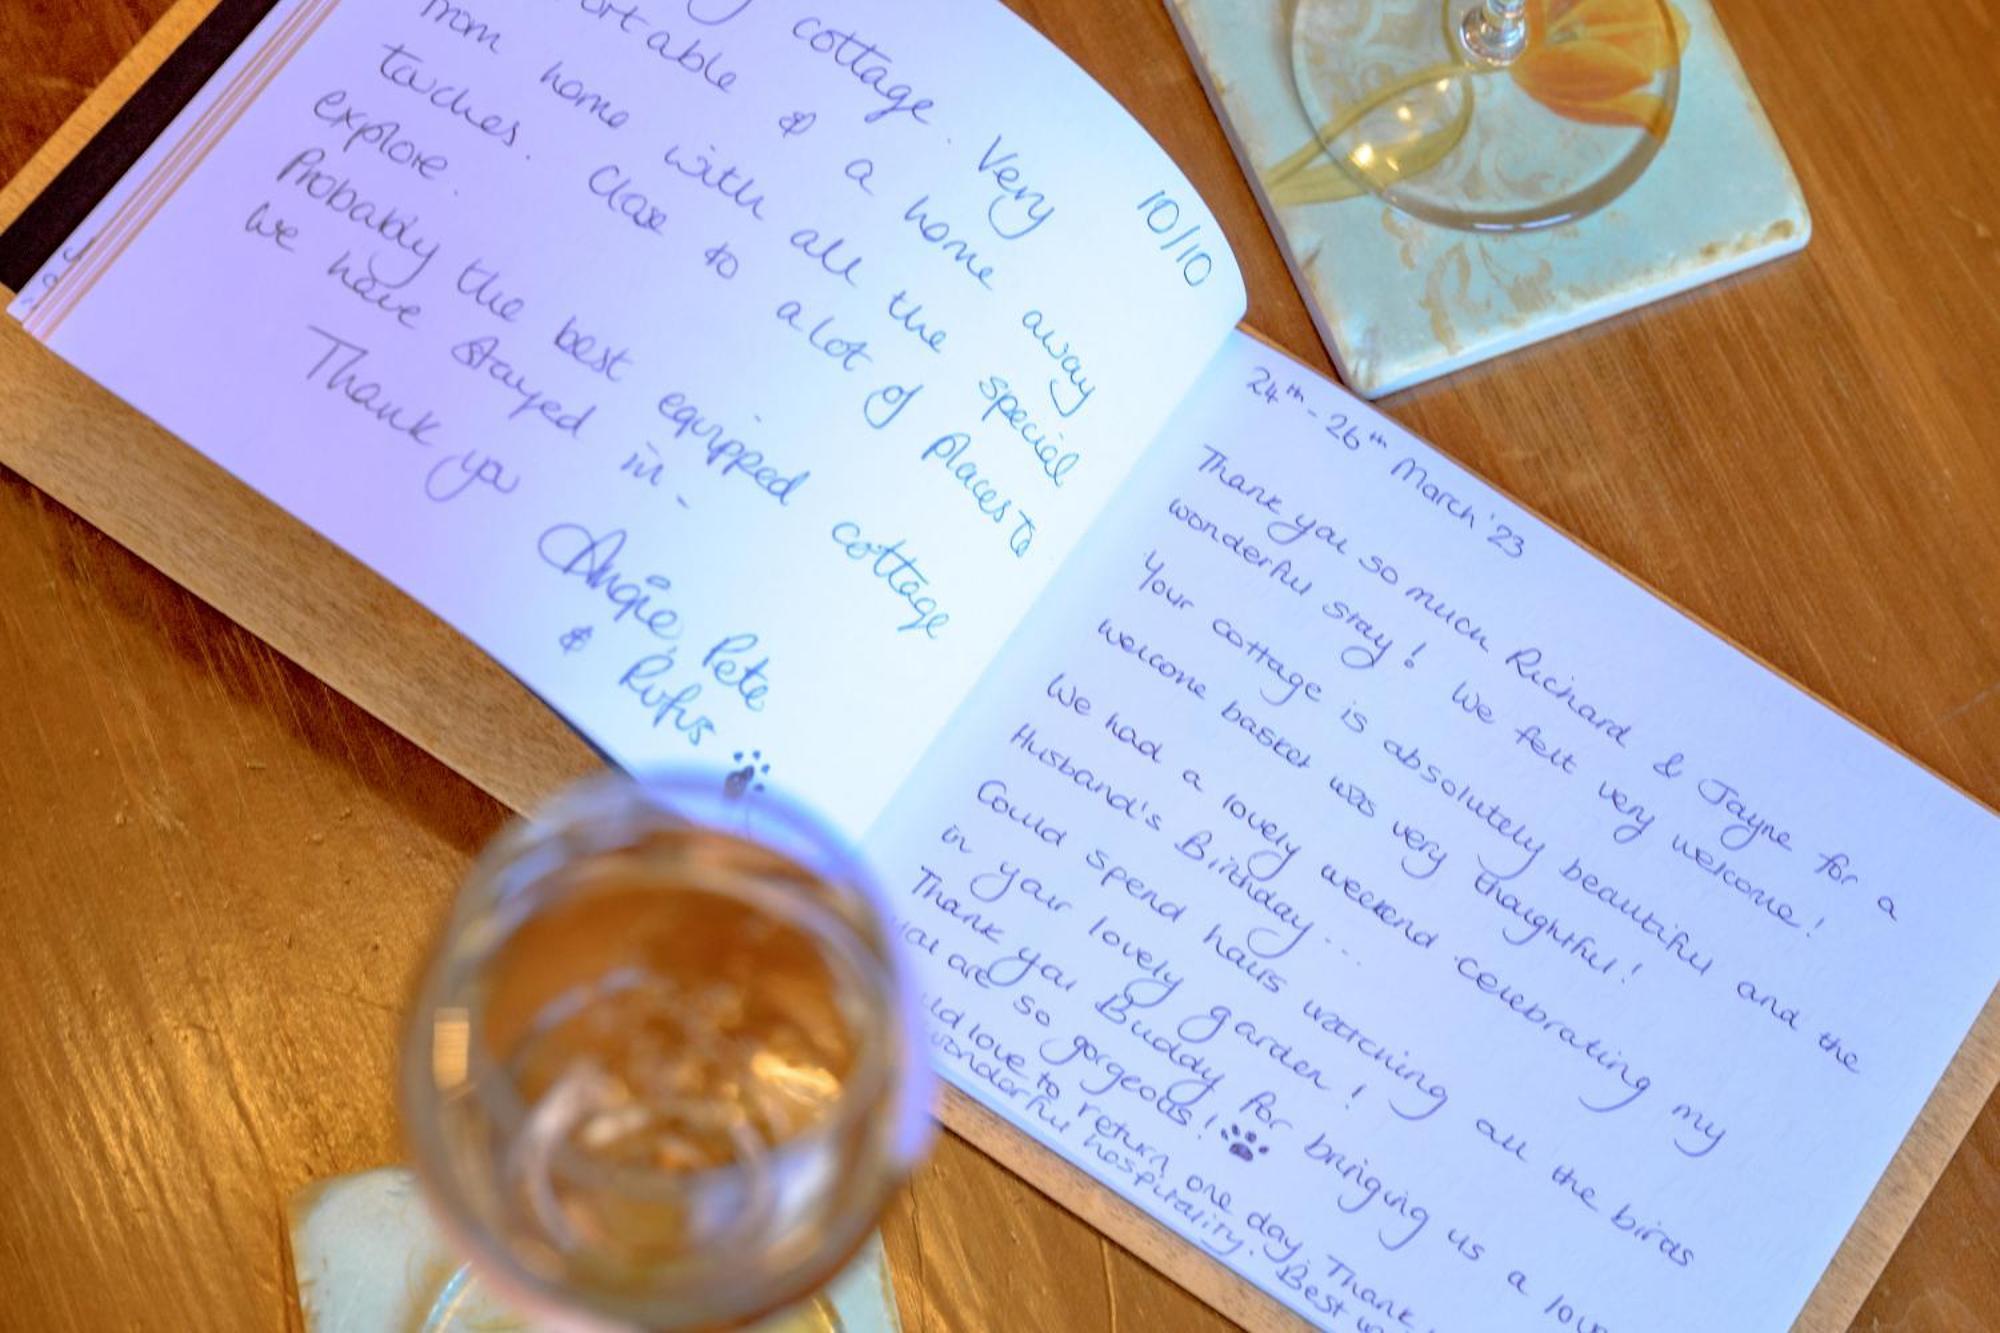 cottage. Very
& a home away
from home with all the special
touches. Close to a lot of places to
explore.
Probably the best equipped cottage
we have stayed in -
Thank you
Angie, Pete
& Rufus
10/10
24th - 26th March '23
Thank you so much Richard & Jayne for a
wonderful stay! We felt very welcome!
Your cottage is absolutely beautiful and the
welcome basket was very thoughtful!
We had a lovely weekend celebrating my
Husband's Birthday...
Could spend hours watching all the birds
in your lovely garden!
Thank you Buddy for bringing us a
you are so gorgeous!
love to return one day. Thank
wonderful hospitality. Best